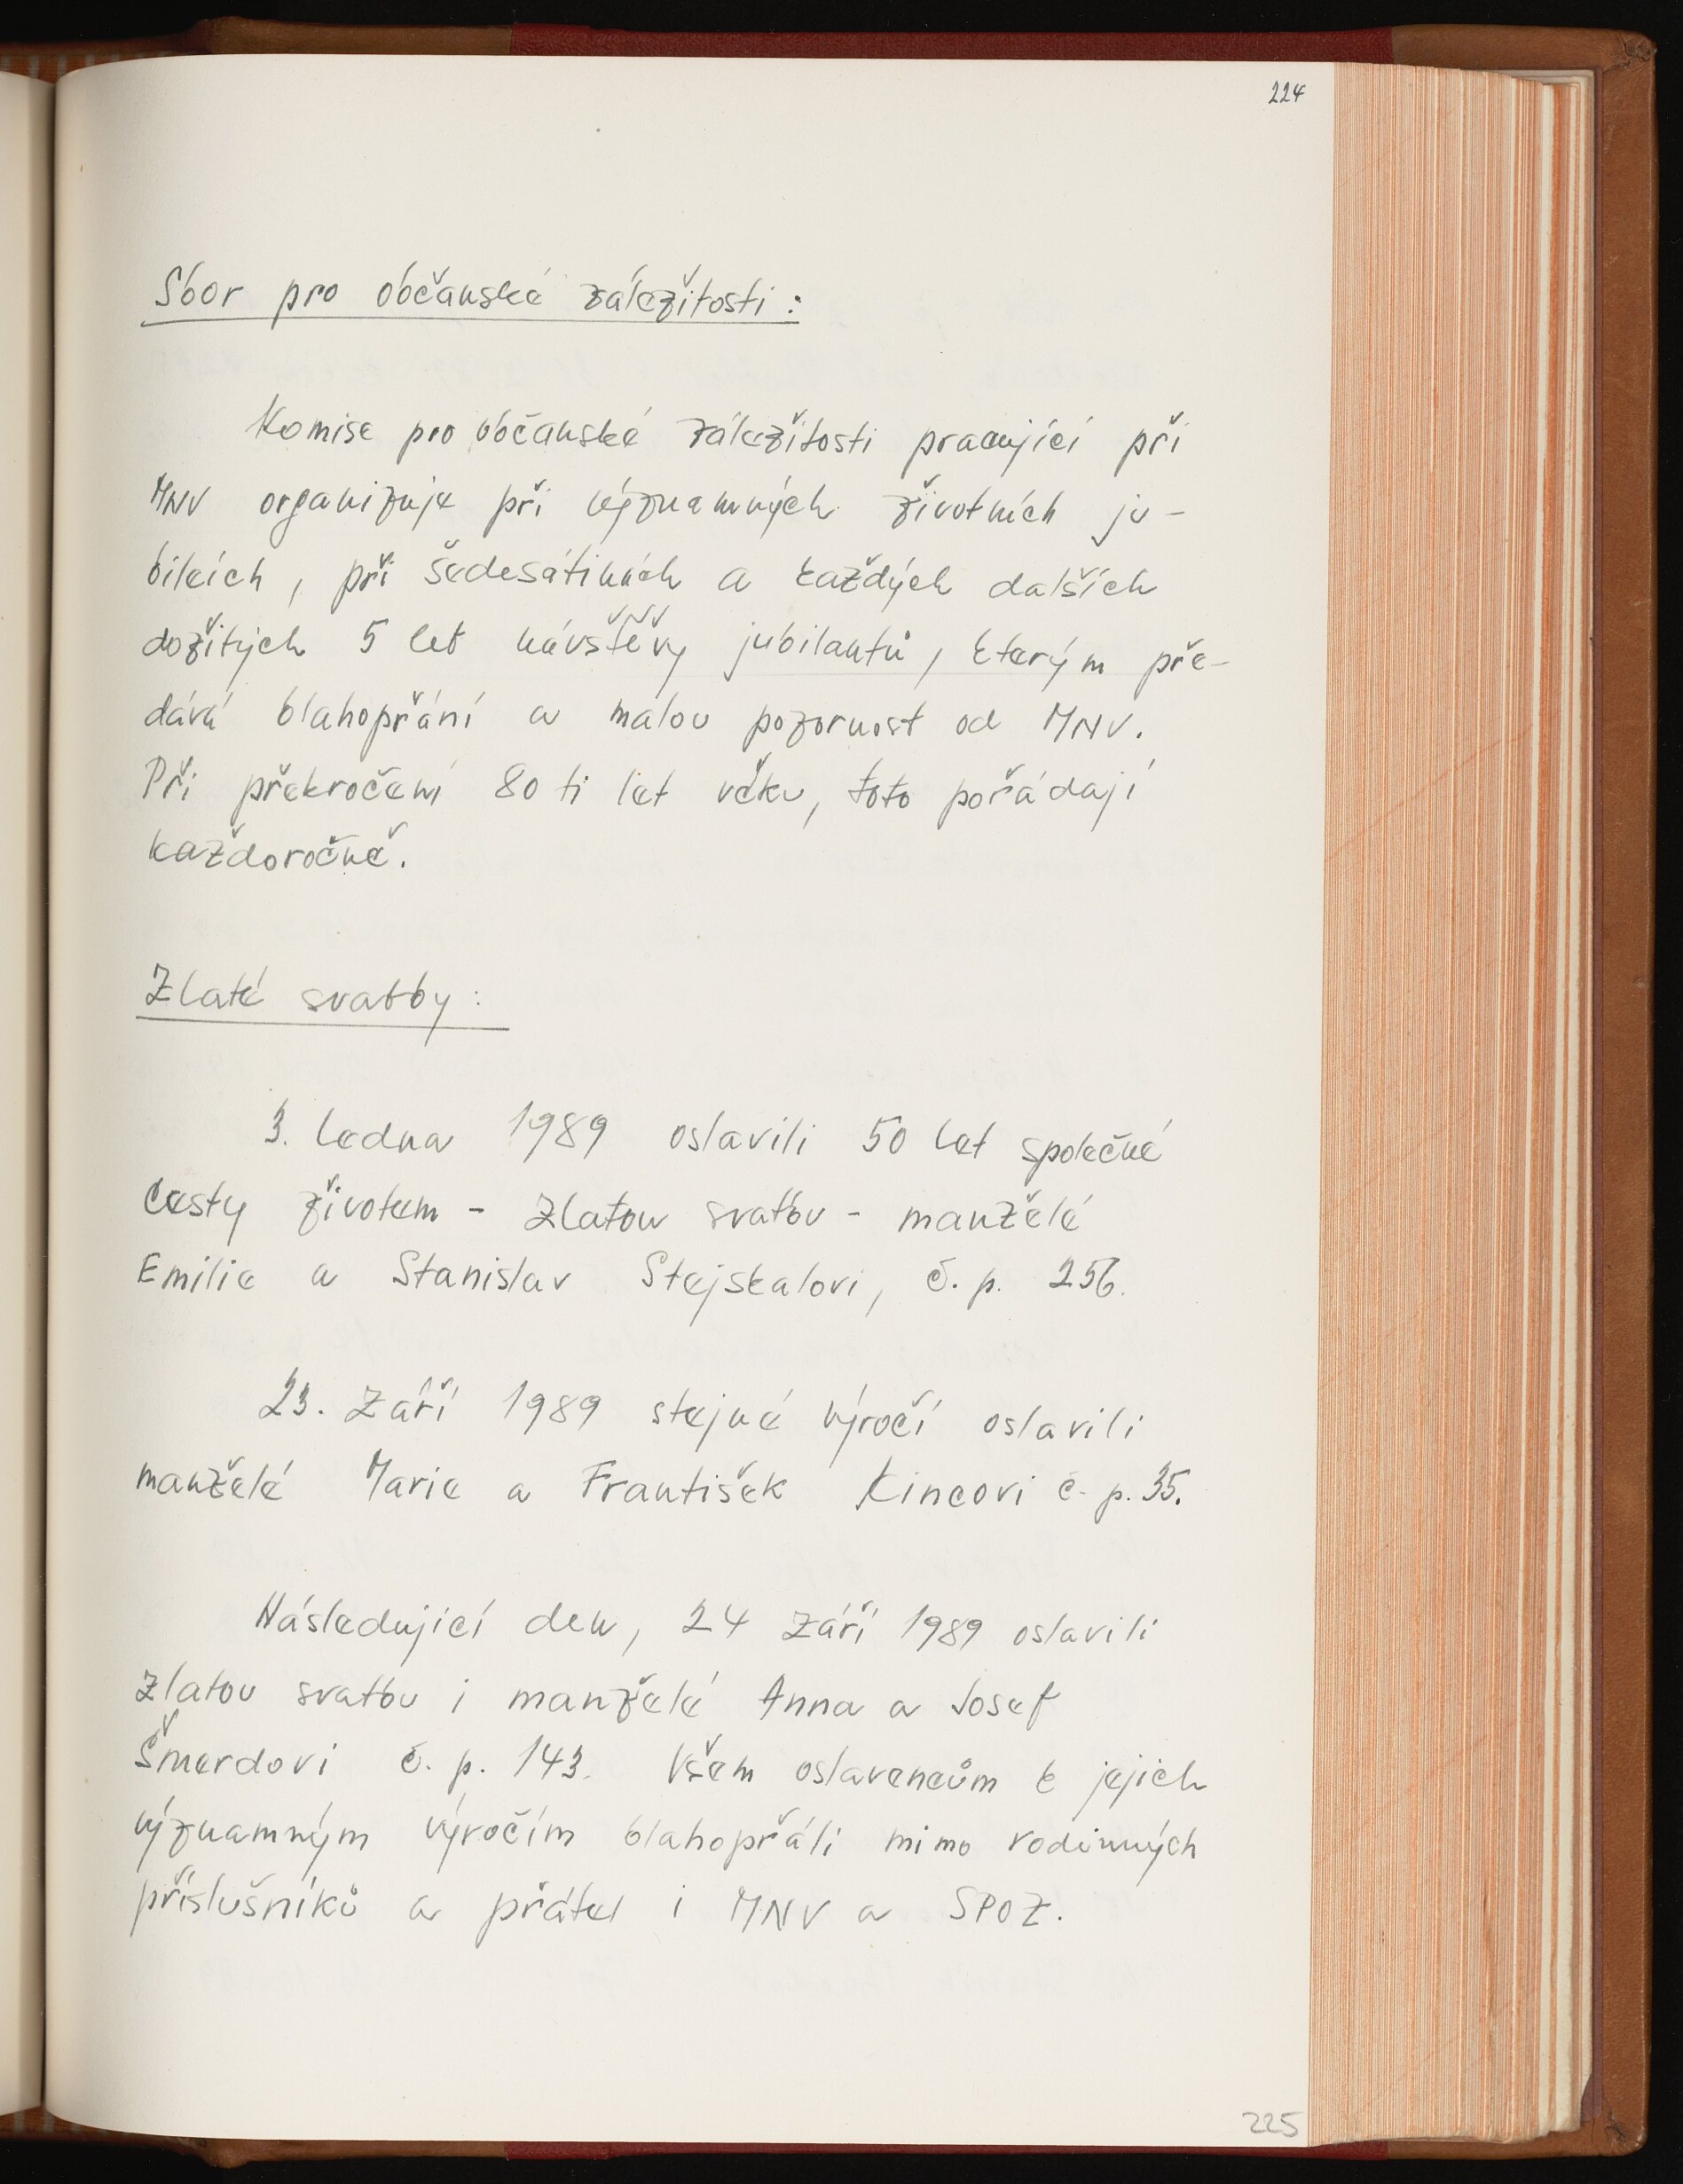 224
Sbor pro občanské záležitosti :
Komise pro občanské záležitosti pracující při
MNV organizuje při významných životních ju-
bileích, při šedesátinách a každých dalších
dožitých 5 let návštěvy jubilantů, kterým pře-
dává blahopřání a malou pozornost od MNV.
Při překročení 80 ti let věku, toto pořádají
každoročně.
Zlaté svatby :
3. ledna 1989 oslavili 50 let společné
cesty životem - zlatou svatbu - manželé
Emilie a Stanislav Stejskalovi, č. p. 256.
23. září 1989 stejné výročí oslavili
manželé Marie a František Kincovi č. p. 35.
Následující den, 24 září 1989 oslavili
zlatou svatbu i manželé Anna a Josef
Šmerdovi č. p. 143. Všem oslavencům k jejich
významným výročím blahopřáli mimo rodinných
příslušníků a přátel i MNV a SPOZ.
225